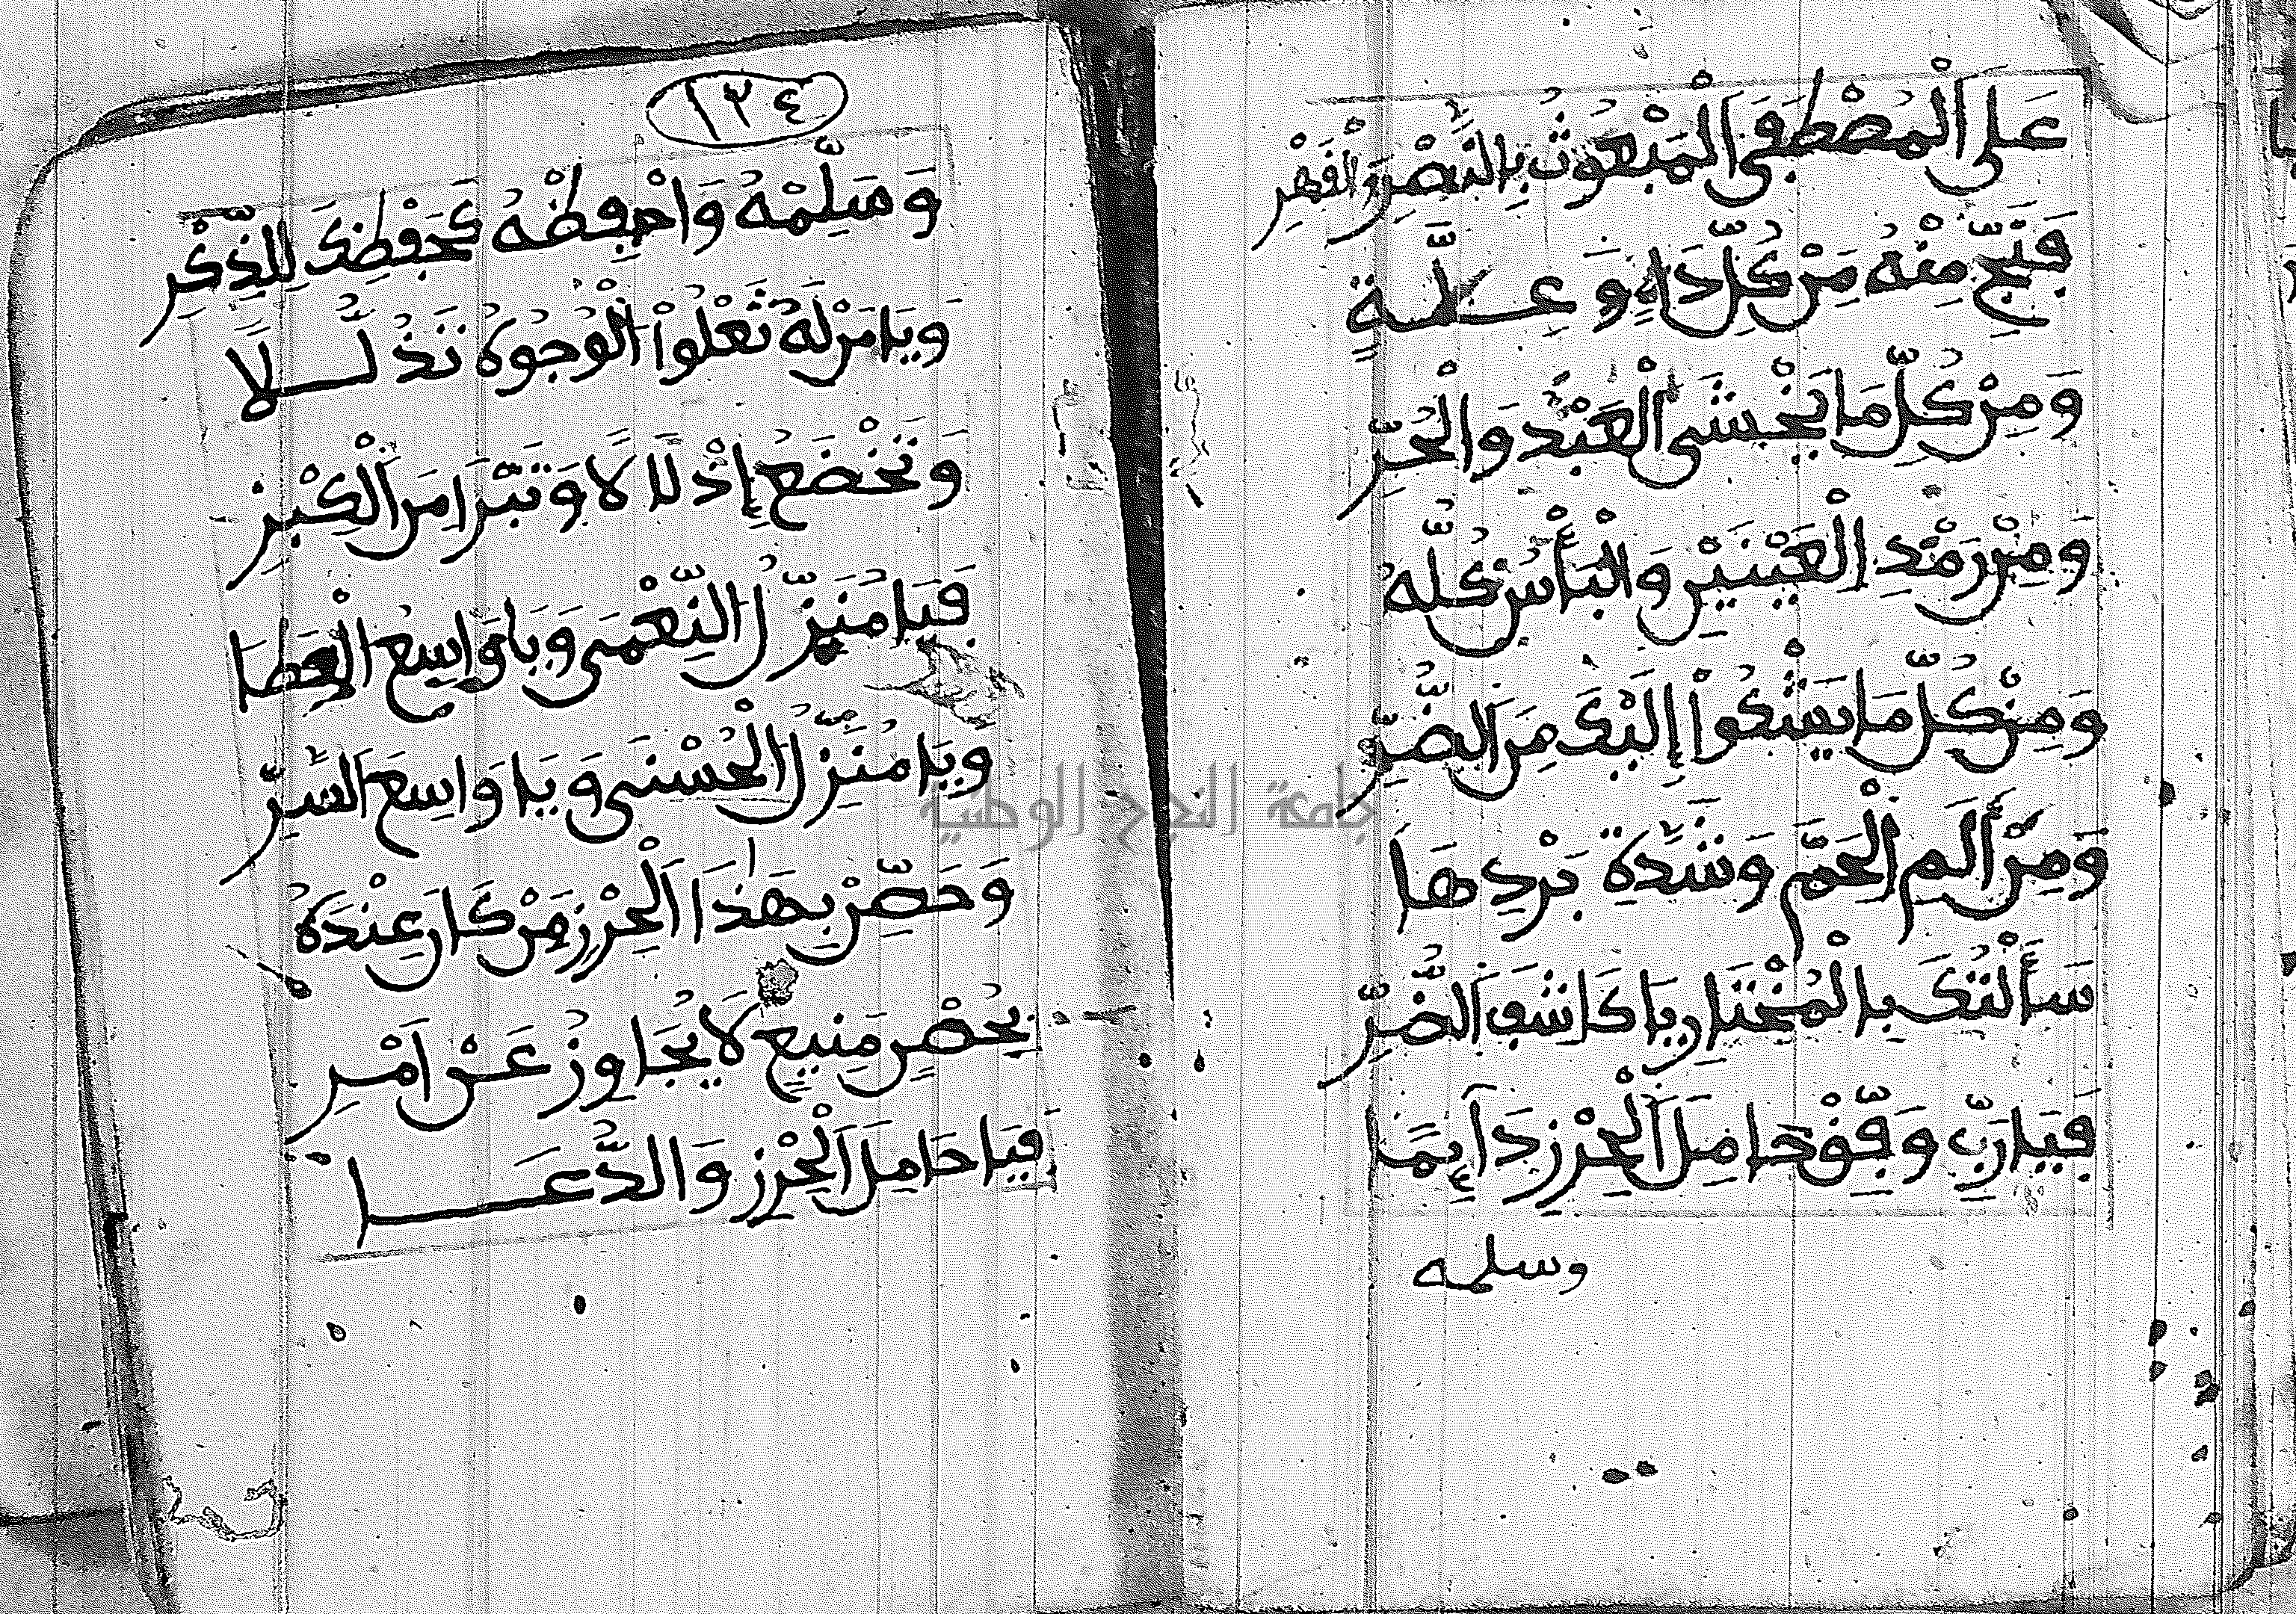 عَلَى الْمُصْطَفَى الْمَبْعُوثِ بِالنَّصْرِ وَالْقَهْرِ
فَنَجِّ مِنْهُ مِنْ كُلِّ دَاءٍ وَعِلَّةٍ
وَمِنْ كُلِّ مَا يَخْشَى الْعَبْدُ وَالْحُرِّ
وَمِنْ رَمْدِ الْعَيْنَيْنِ وَالْبَأْسِ كُلِّهِ
وَمِنْ كُلِّ مَا يَشْكُوا إِلَيْكَ مِنَ الضُّرِّ
وَمِنْ أَلَمِ الْحَمِّ وَشَدَّةِ بَرْدِهَا
سَأَلْتُكَ بِالْمُخْتَارِ يَا كَاشِفَ الضُّرِّ
فَيَا رَبِّ وَفِّقْ حَامِلَ الْحِرْزِ دَآئِمًا
وسلمه
١٣٤
وَسَلِّمْهُ وَاحْفِظْهُ كَحِفْظِكَ لِلذِّكْرِ
وَيَا مَنْ لَهُ تَعْلُوا الْوُجُوهُ تَذَلُّلًا
وَتَخْضَعُ إِذْلَالًا وَتَبْرَا مِنَ الْكِبْرِ
فَيَا مُنَزِّلُ النِّعْمَى وَيَا وَاسِعُ الْعَطَا
وَيَا مُنَزِّلُ الْحُسْنَى وَيَا وَاسِعَ السِّرِّ
وَحَصِّنْ بِهَذَا الْحِرْزِ مَنْ كَانَ عِنْدَهُ
بِحُصْنٍ مَنِيعٍ لَا يُجَاوِزُ عَنْ أَمْرِ
فَيَا حَامِلَ الْحِرْزِ وَالدُّعَا
جامعة النجاح الوطنية